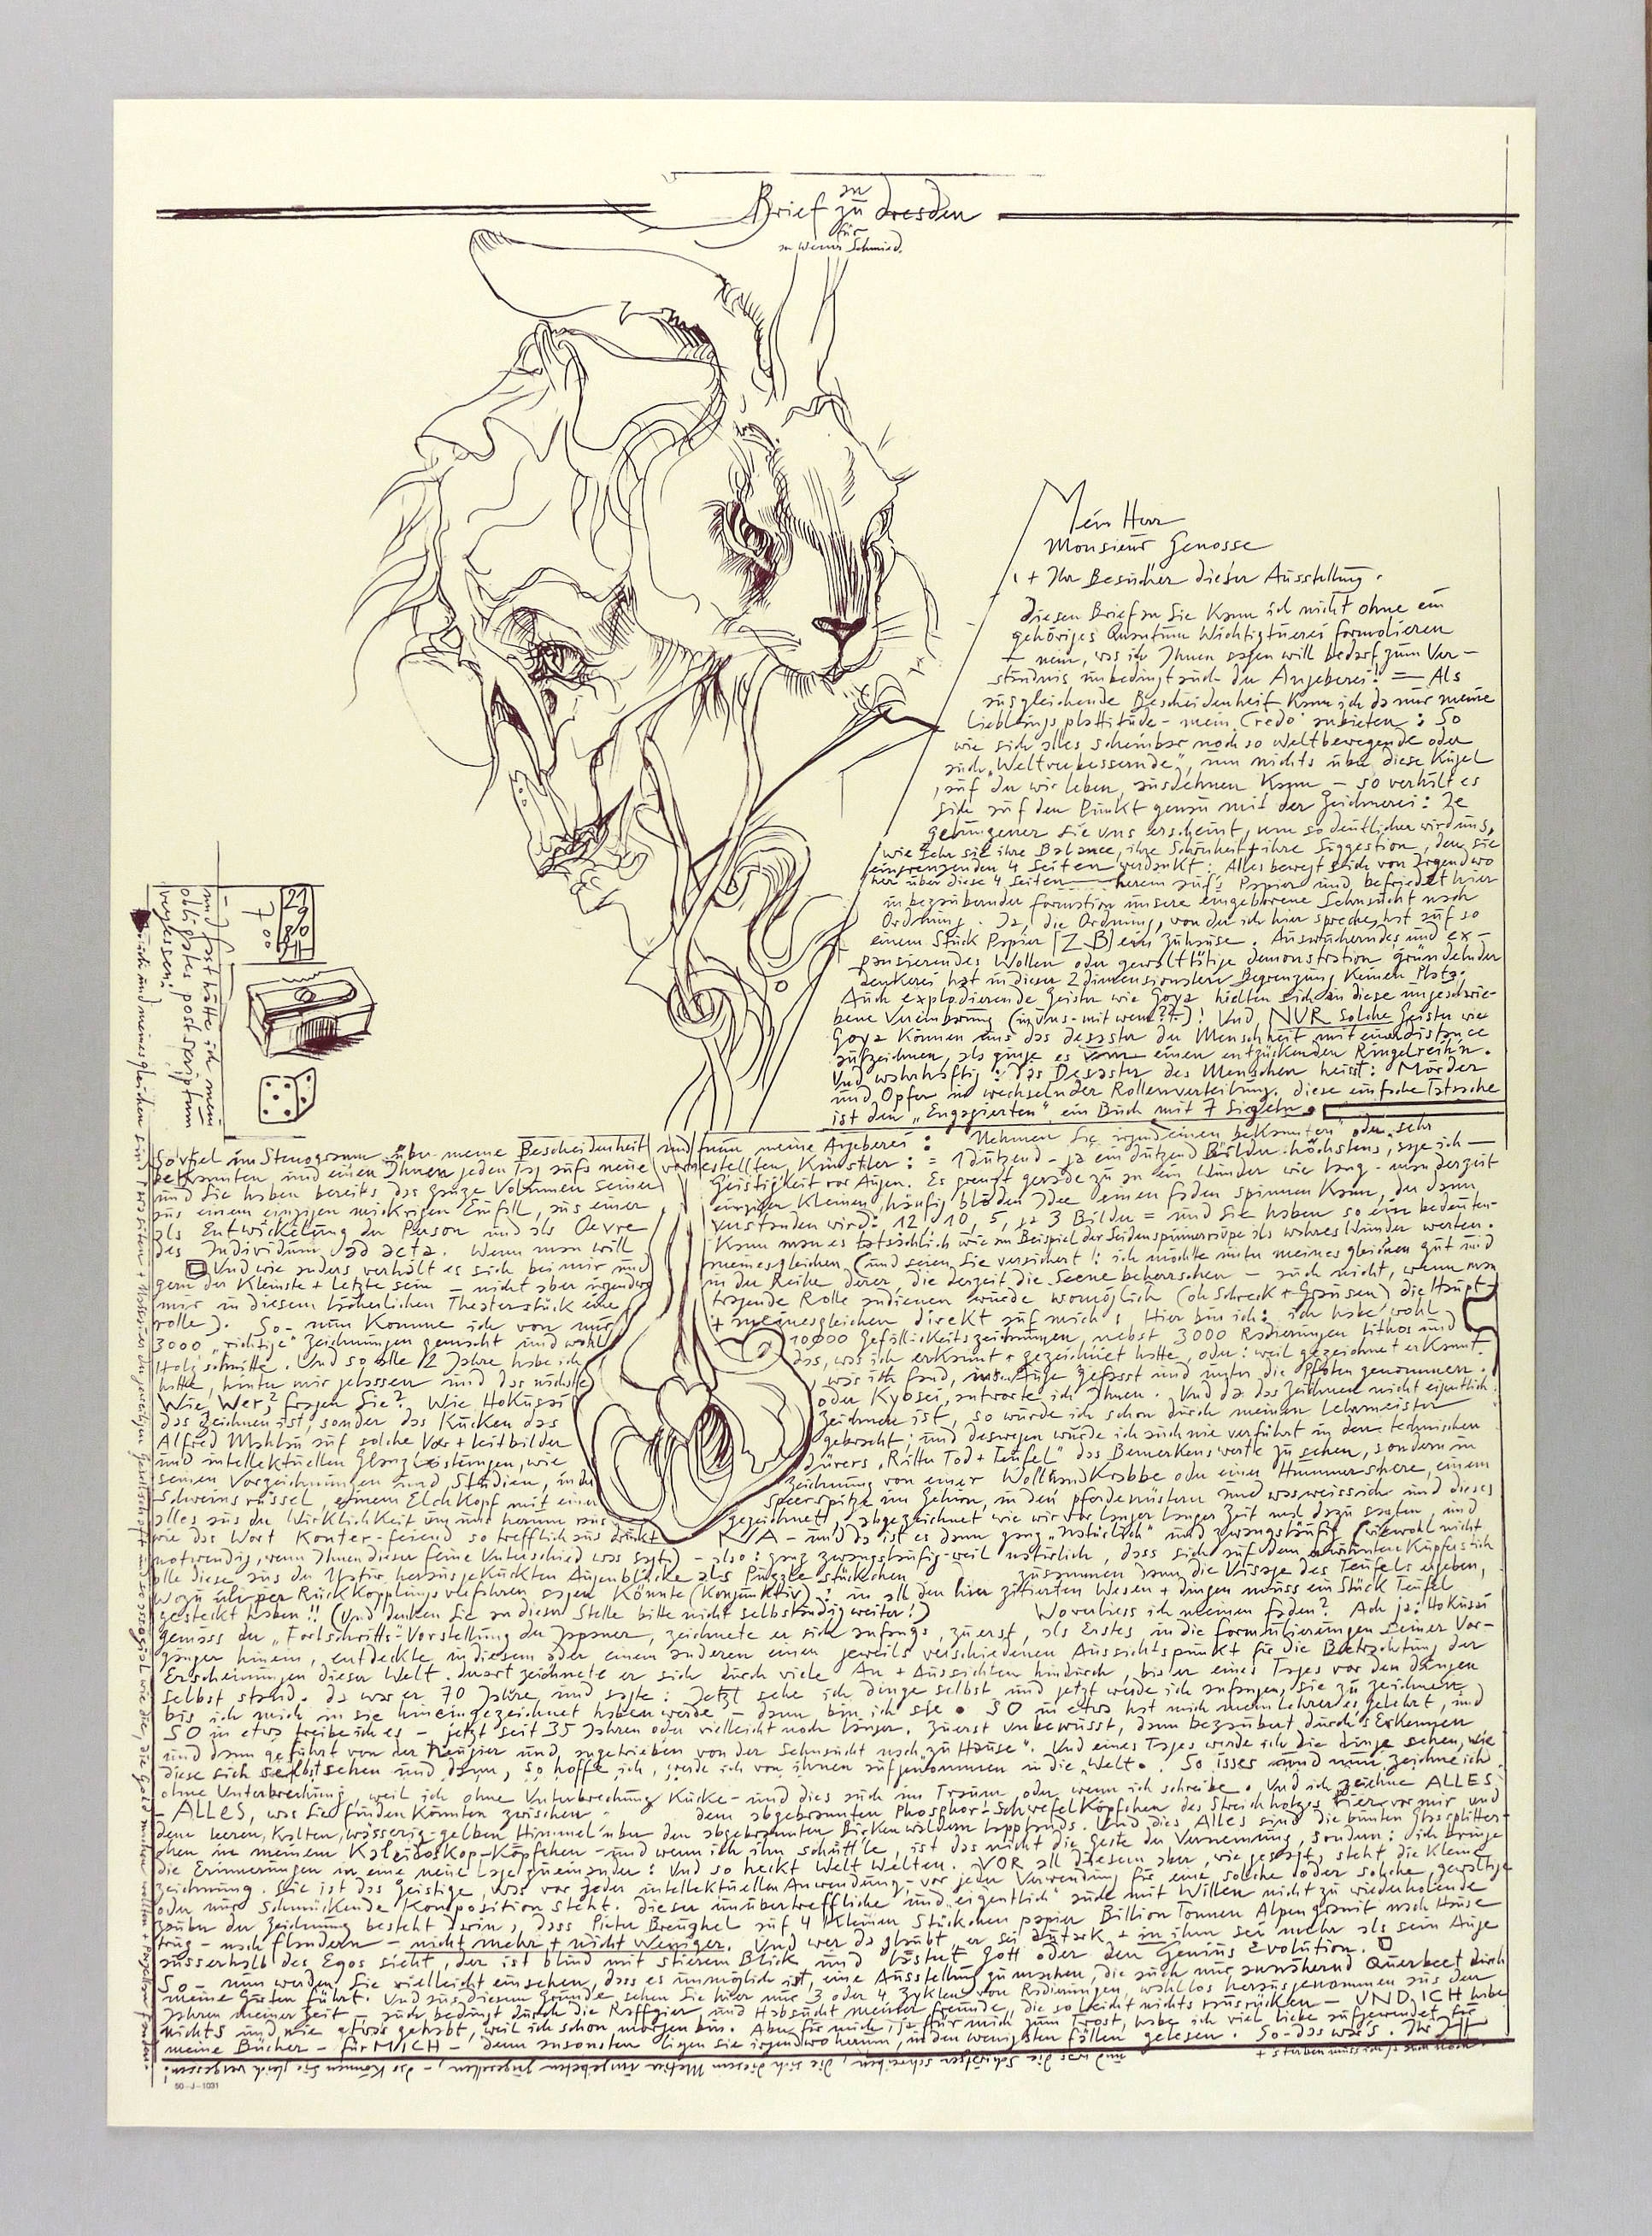 an
Brief zu dresden
für
Werner Schmied.
Mein Herr
Monsieur Genosse
+ Ihr Besucher dieser Ausstellung.
diesen Brief an Sie kann ich nicht ohne ein
gehöriges Quantum Wichtigtuerei formulieren
+ nein, was ich Ihnen sagen will bedarf zum Ver-
ständnis unbedingt auch der Angeberei! = Als
ausgleichende Bescheidenheit kann ich da nur meine
Lieblingsplattitüde - mein Credo anbieten: So
wie sich alles scheinbar noch so Weltbewegende oder
auch „Weltverbessernde", um nichts über diese Kugel
, auf der wir leben, ausdehnen kann - so verhält es
sich auf den Punkt genau mit der Zeichnerei: Je
gelungener sie uns erscheint, um so deutlicher wird uns,
wie sehr sie ihre Balance, ihre Schönheit + ihre Suggestion, den sie
eingrenzenden 4 Seiten verdankt: Alles bewegt sich von Irgendwo
her über diese 4 Seiten herein auf's Papier und befriedet hier
in bezaubernder Formation unsere eingeborene Sehnsucht nach
Ordnung. Ja, die Ordnung, von der ich hier spreche, hat auf so
einem Stück Papier [Z B] ein Zuhause. Auswucherndes und ex-
pansierendes Wollen oder gewalttätige demonstration gründelnder
denkerei hat in dieser 2 dimensionalen Begrenzung keinen Platz.
Auch explodierende Geister wie Goya hielten sich an diese ungeschrie-
bene Vereinbarung (in uns - mit wem??-)! Und NUR solche Geister wie
Goya können uns das desaster der Menschheit mit einer distance
aufzeichnen, als ginge es um einen entzückenden Ringelreih'n.
Und wahrhaftig: das Desaster des Menschen heisst: Mörder
und Opfer in wechselnder Rollenverteilung. diese einfache Tatsache
ist den „Engagierten" ein Buch mit 7 Siegeln.
und fast hätte ich mein
obligates postscriptum
vergessen!
Soviel im Stenogramm über meine Bescheidenheit und nun meine Angeberei: Nehmen Sie irgend einen bekannten oder sehr
bekannten und einen Ihnen jeden Tag aufs neue vorgestellten Künstler: = 1 dutzend - ja ein dutzend Bilder höchstens, sage ich -
und Sie haben bereits das ganze Volumen seiner Geistigkeit vor Augen. Es grenzt gerade zu an ein Wunder wie lang - man derzeit
aus einem einzigen mickrigen Einfall, aus einer einzigen kleinen, häufig blöden Idee einen faden spinnen kann, der dann
als Entwickelung der Person und als Oevre verstanden wird: 12, 10, 5, ja 3 Bilder = und Sie haben so ein bedeuten-
des Individum ad acta. Wenn man will kann man es tatsächlich wie am Beispiel der Seidenspinnerraupe als wahres Wunder werten.
Und wie anders verhält es sich bei mir und meinesgleichen (und seien Sie versichert: ich möchte unter meines gleichen gut und
gern der Kleinste + Letzte sein - nicht aber irgendwo in der Reihe derer die derzeit die Scene beherrschen - auch nicht, wenn man
mir in diesem lächerlichen Theaterstück eine tragende Rolle andienen würde womöglich (oh Schreck + Graussen) die Haupt-
rolle). So - nun komme ich von mir + meinesgleichen direkt auf mich: Hier bin ich: ich habe wohl
3000 „richtige" Zeichnungen gemacht und wohl 10000 Gefälligkeitszeichnungen, nebst 3000 Radierungen Lithos und
Holzschnitte. Und so alle 12 Jahre habe ich das, was ich erkannt + gezeichnet hatte, oder: weil gezeichnet erkannt
hatte, hinter mir gelassen und das nächste, was ich fand, ins Auge gefasst und unter die Pfoten genommen.
Wie, Wer? fragen Sie? Wie Hokusai oder Kyosei, antworte ich Ihnen. Und da das Zeichnen nicht eigentlich
das Zeichnen ist, sonder das Kucken das Zeichnen ist, so wurde ich schon durch meinen Lehrmeister
Alfred Mahlau auf solche Vor + Leitbilder gebracht; und deswegen wurde ich auch nie verführt in den technischen
und intellektuellen Glanzleistungen, wie dürers „Ritter Tod + Teufel" das Bemerkenswerte zu sehen, sondern in
seinen Vorzeichnungen und Studien, in der Zeichnung von einer Wollhandkrabbe oder einer Hummerschere, einem
Schweinsrüssel, einem Elchkopf mit einer Speerspitze im Gehirn, in den pferdenüstern und was weiss ich und dieses
alles aus der Wirklichkeit um uns herum raus gezeichnet, abgezeichnet wie wir vor langer langer Zeit mal dazu sagten, und
wie das Wort Konter-feiend so trefflich aus drückt. NA - und da ist es dann ganz „natürlich" und zwangsläufig (wiewohl nicht
notwendig, wenn Ihnen dieser feine Unterschied was sagt) - also: ganz zwangsläufig - weil natürlich, dass sich auf dem Kupfer sich
alle diese aus der Natur herausgekuckten Augenblicke als Puzzle stückchen zusammen dann die Visage des Teufels ergeben,
wozu üli per Rückkopplungsverfahren sagen könnte (Konjunktiv)!: in all den hier zitierten Wesen + dingen muss ein Stück Teufel
gesteckt haben!! (Und denken Sie an dieser Stelle bitte nicht selbständig weiter!) Wo verliess ich meinen faden? Ach ja! Hokusai
gemäss der „Fortschritts"-Vorstellung der Japaner, zeichnete er sich anfangs, zuerst, als Erstes, in die formulierungen seiner Vor-
gänger hinein, entdeckte in diesem oder einem anderen einen jeweils verschiedenen Aussichtspunkt für die Betrachtung der
Erscheinungen dieser Welt. derart zeichnete er sich durch viele An + Aussichten hindurch, bis er eines Tages vor den dingen
selbst stand. da war er 70 Jahre, und sagte: Jetzt sehe ich dinge selbst und jetzt werde ich anfangen, sie zu zeichnen
bis ich mich in sie hineingezeichnet haben werde - dann bin ich sie. SO in etwa hat mich mein Lehrer es gelehrt, und
SO in etwa treibe ich es - jetzt seit 35 Jahren oder vielleicht noch länger. Zuerst unbewusst, dann bezaubert durch's Erkennen
und dann geführt von der Neugier und angetrieben von der Sehnsucht nach „zu Hause". Und eines Tages werde ich die dinge sehen, wie
diese sich selbst sehen und dann, so hoffe ich, werde ich von ihnen aufgenommen in die Welt. So isses und nun zeichne ich
ohne Unterbrechung, weil ich ohne Unterbrechung Kucke - und dies auch im Traum oder wenn ich schreibe. Und ich zeichne ALLES
- ALLES, was Sie finden könnten zwischen dem abgebrannten Phosphor-Schwefelköpfchen des Streichholzes hier vor mir und
dem leeren, kalten, wässerig-gelben Himmel über den abgebrannten Birkenwäldern Lapplands. Und dies Alles sind die bunten Glassplitter-
chen in meinem Kaleidoskop-Köpfchen - und wenn ich ihn schüttle, ist das nicht die Geste der Verneinung, sondern: ich bringe
die Erinnerungen in eine neue Lage zueinander! Und so heckt Welt Welten. VOR all diesem aber, wie gesagt, steht die kleine
Zeichnung. Sie ist das Geistige, was vor jeder intellektuellen Anwendung, vor jeder Verwendung für eine solche oder solche, gewaltige
oder nur schmückende Komposition steht. dieser unübertreffliche und „eigentlich" auch mit Willen nicht zu wiederholende
zauber der Zeichnung besteht darin, dass Pieter Breughel auf 4 kleinen Stückchen papier Billion Tonnen Alpengranit nach Hause
trug - nach flandern - nicht mehr + nicht weniger. Und wer da glaubt, er sei autark + in ihm sei mehr als sein Auge
ausserhalb des Egos sieht, der ist blind mit stierem Blick und lästert Gott oder den Genius Evolution.
So - nun werden Sie vielleicht einsehen, dass es unmöglich ist, eine Ausstellung zu machen, die auch nur annähernd Querbeet durch
meine Gärten führt. Und aus diesem Grunde sehen Sie hier nur 3 oder 4 Zyklen von Radierungen, wahllos herausgenommen aus den
Jahren meiner Zeit - auch bedingt durch die Raffgier und Habsucht meiner freunde, die so leicht nichts rausrücken - UND ICH habe
nichts und nie etwas gehabt, weil ich schon morgen bin. Aber für mich, ja für mich zum Trost, habe ich viel Liebe aufgewendet für
meine Bücher - für MICH - denn ansonsten liegen sie irgendwo herum, in den wenigsten fällen gelesen. So - das war's. Ihr
+ sterben muss ich ja auch noch.
und was die schreiben, die sich diesem Metier
50-J-1031